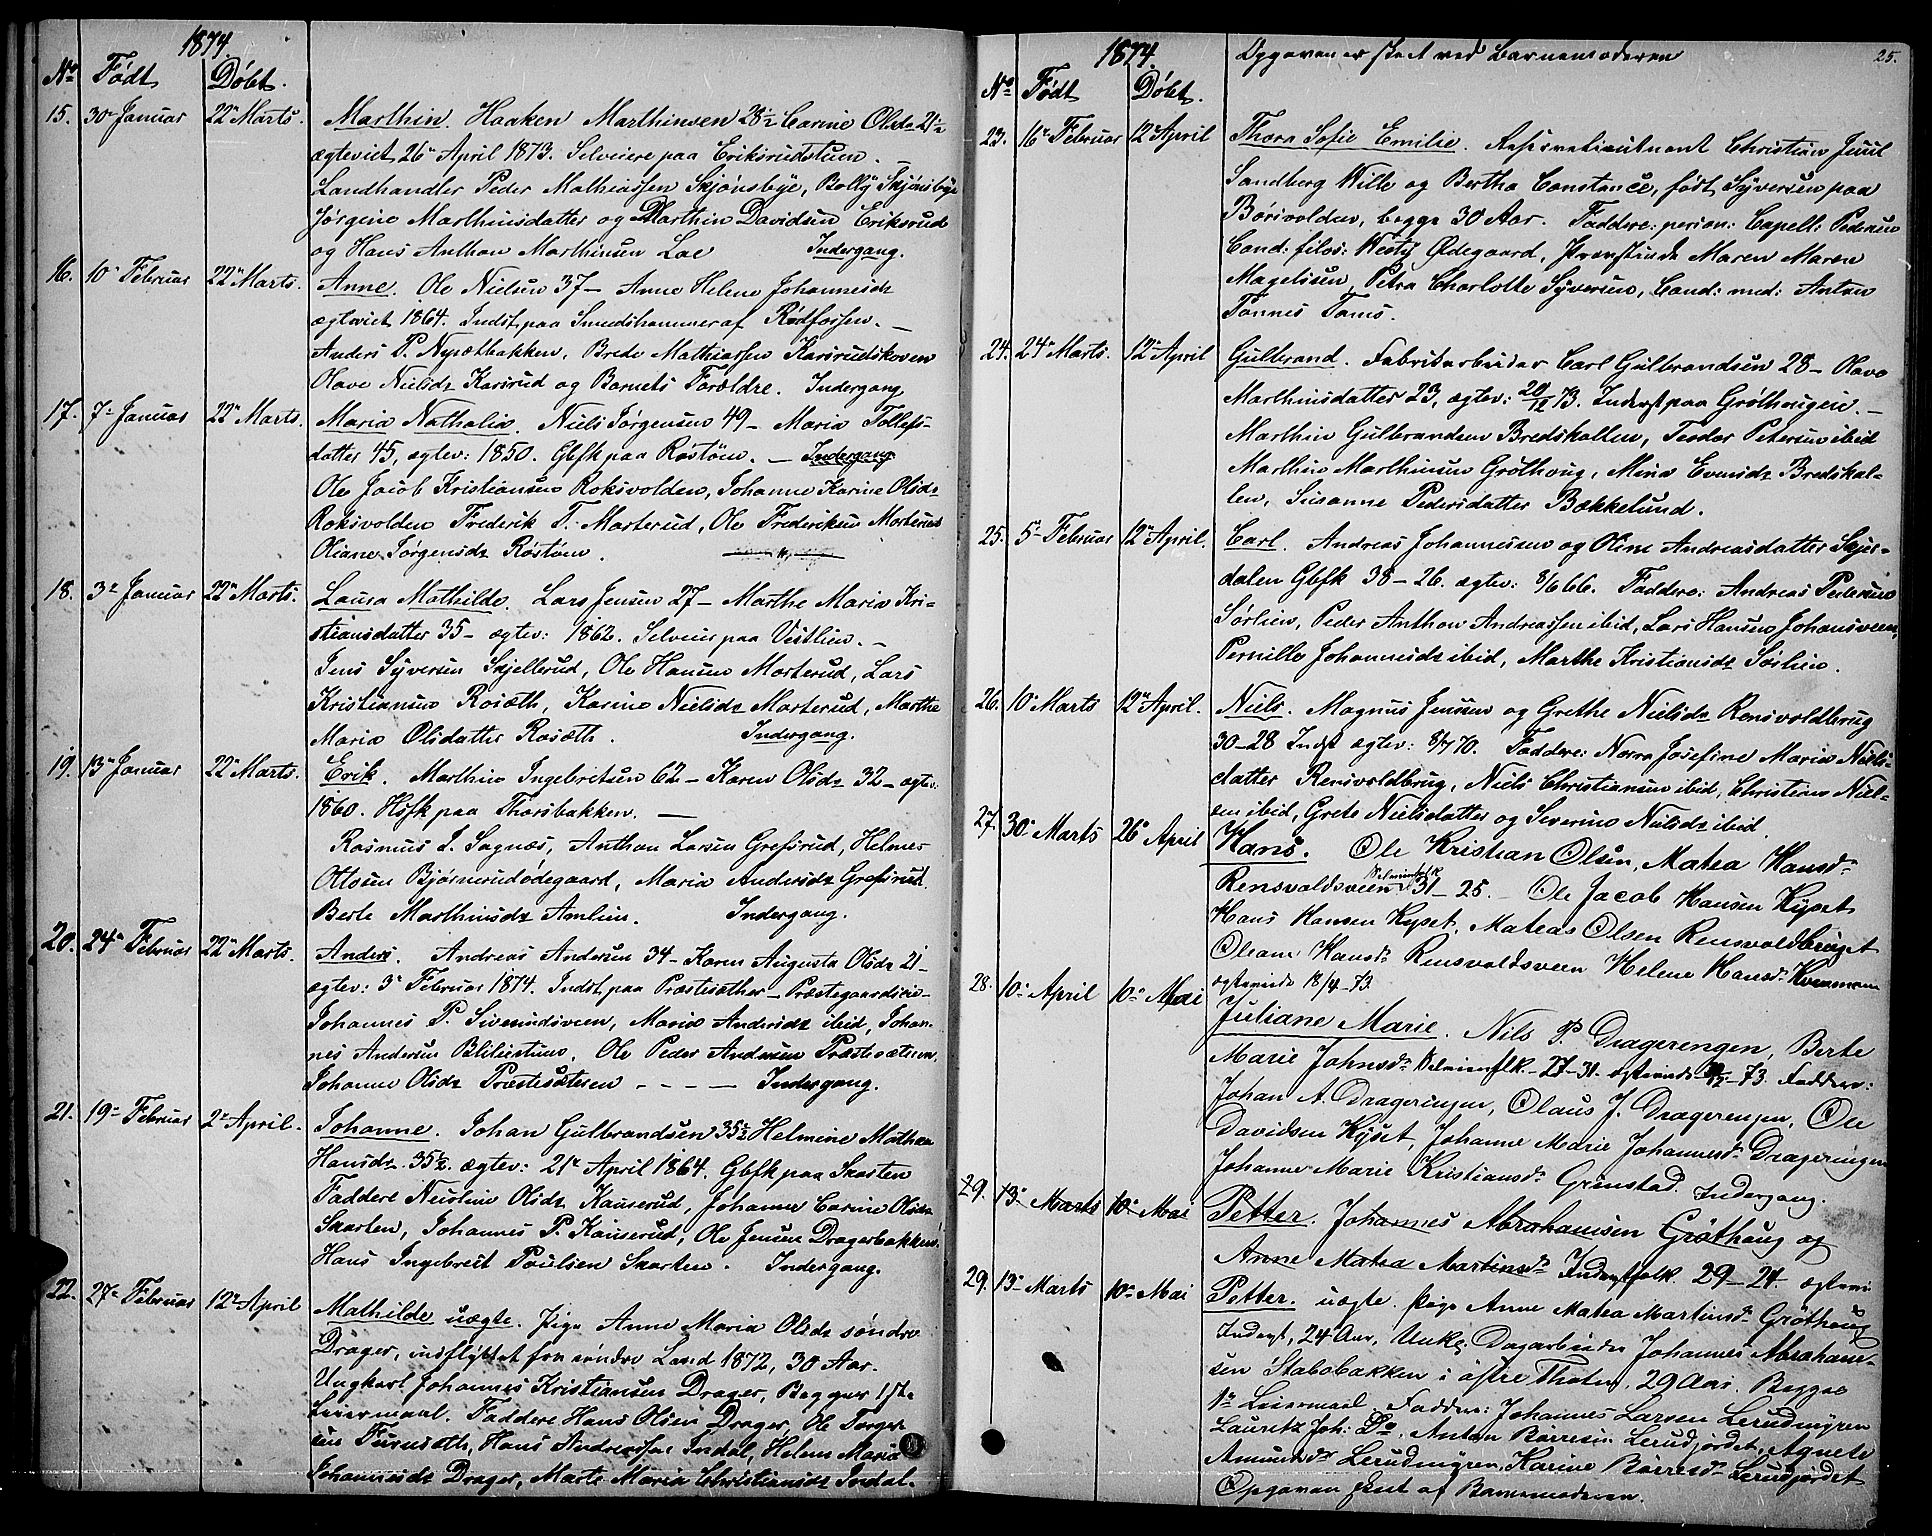 1874.
No Født Døbt.
15. 30te Januar 22de Marts. Marthin. Haaken Marthinsen 28 1/2 Carine Olsdr 21 1/2
ægteviet 26de April 1873. Selveiere paa Eriksrudstuen. —
Landhandler Peder Mathiassen Skjønsbye, Bolly Skjønsbye
Jørgine Marthinsdatter og Marthin Davidsen Eriksrud
og Hans Anthon Marthinsen Loe Indergang.
16. 10de Februar 22de Marts. Anne. Ole Nielsen 37 — Anne Helene Johannesdr
ægteviet 1864. Indst. paa Smedshammer af Rødfossen. —
Anders P. Nysætbakken, Brede Mathiassen Karsrudskoven
Olave Nielsdr Karsrud og Barnets Forældre. Indergang
17. 7de Januar 22de Marts. Maria Nathalia. Niels Jørgensen 49 — Maria Tollefs-
datter 45, ægtev: 1850. Gbfk paa Røstøen. — Indergang
Ole Jacob Kristiansen Roksvolden, Johanne Karine Olsdr
Roksvolden Frederik T. Marterud, Ole Frederiksen Marterud
Oliane Jørgensdr Røstøen.
18. 3de Januar 22de Marts. Laura Mathilde. Lars Jensen 27 — Marthe Maria Kri-
stiansdatter 35 — ægtev: 1862. Selveier paa Vestlien. —
Jens Syversen Skjellerud, Ole Hansen Marterud, Lars
Kristiansen Rosæth, Karine Nielsdr Marterud, Marthe
Maria Olsdatter Rosæth. Indergang.
19. 13de Januar 22de Marts. Erik. Marthin Ingebretsen 62 — Karen Olsdr 32 — ægtev:
1860. Hsfk paa Thorsbakken. —
Rasmus J. Sagnæs, Anthon Larsen Grefsrud, Helmer
Ottosen Bjørnerudødegaard, Maria Andersdr Grefsrud.
Berte Marthinsdr Amlien. Indergang.
20. 24de Februar 22de Marts. Anders. Andreas Andersen 34 — Karen Augusta Olsdr 21 —
ægtev: 3de Februar 1874. Indst. paa Præstesæther — Præstegaardseie —
Johannes P. Siverudsveen, Maria Andersdr ibid, Johan-
nes Andersen Blilistuen, Ole Peder Andersen Præstesæteren.
Johanne Olsdr Præstesæteren — — — — Indergang.
21. 19de Februar 2den April. Johanne. Johan Gulbrandsen 35 1/2 Helmine Mathea
Hansdr. 35 1/2. ægtev: 21de April 1864. Gbfk paa Skarten
Faddere Nicoline Olsdr Kauserud, Johanne Carine Olsdr
Skarten, Johannes P. Kauserud, Ole Jensen Dragerbakken
Hans Ingebret Poulsen Skarten. Indergang.
22. 27de Februar 12te April Mathilde uægte. Pige Anne Maria Olsdr søndre
Drager, indflyttet fra søndre Land 1872, 30 Aar.
Ungkarl Johannes Kristiansen Drager, Begges 1ste
Leiermaal. Faddere Hans Olsen Drager, Ole Torger
sen Furusæth, Hans Andreassen Indal, Helene Maria
Johannesdr Drager, Marte Maria Christiansdr Indal.
1874. Opgaven er skeet ved Barnemoderen 25.
No Født Døbt.
23. 16de Februar 12te April Thora Sofie Emilie. Reservelieutnant Christian Juul
Sandberg Wille og Bertha Constance, født Syversen paa
Börsvolden, begge 30 Aar. Faddere: person: Capell: Pedersen
Cand: filos: Ødegaard, Provstinde Maren Maren
Magelssen, Petra Charlotte Syversen, Cand: med: Anton
Tønnes Toms.
24. 24de Marts. 12te April Gulbrand. Fabrikarbeider Carl Gulbrandsen 28 — Olave
Marthinsdatter 23, ægtev: 28/12 73. Inderst paa Grøthougen. —
Marthin Gulbrandsen Bredskallen, Teodor Petersen ibid
Marthin Marthinsen Grøthoug, Mina Evensdr Bredskal-
len, Susanne Pedersdatter Bækkelund.
25. 5te Februar 12te April. Carl. Andreas Johannessen og Oline Andreasdatter Skjær-
dalen Gbfk 38 — 26. ægtev: 8/6 66. Faddere: Andreas Pedersen
Sørlien, Peder Anthon Andreassen ibid, Lars Hansen Johansveen,
Pernille Johannesdr ibid, Marthe Kristiansdr Sørlien.
26. 10de Marts 12te April. Niels. Magnus Jensen og Grethe Nielsdr Rensvoldbrug
30 — 28 Indst ægtev: 8/7 70. Faddere: Norra Josefine Maria Niels-
datter Rensvoldbrug, Niels Christiansen ibid, Christian Niel-
sen ibid, Grete Nielsdatter og Severine Nielsdr ibid.
27. 30te Marts 26de April Hans. Ole Kristian Olsen, Matea Hansdr
Rensvoldsveen Selveierfolk 31 — 25. — Ole Jacob Hansen Kyset
Hans Hansen Kyset, Mateas Olsen Rensvoldbruget
Oleane Hansdr Rensvoldsveen Helene Hansdr Kvenmoen
ægteviede 18/4 — 73
28. 10de April 10de Mai Juliane Marie. Nils P. Dragerengen, Berte
Marie Johnsdr Selveierflk — 27 — 31. ægteviede /12 — 73. Faddere:
Johan A. Dragerengen, Olaus J. Dragerengen, Ole
Davidsen Kyset, Johanne Marie Johannesdr Dragerengen
Johanne Marie Kristiansdr Grinstad. Indergang.
29. 13de Marts 10de Mai Petter. Johannes Abrahamsen Gröthaug og
Anne Matea Martinsdr Inderstfolk 29 — 24 ægtevi
29. 13de Marts 10de Mai Petter. uægte. Pige Anne Matea Martinsdr Gröthaug
Inderst, 24 Aar, Unke: Dagarbeider Johannes Abraham-
sen Stabobakken i østre Thoten, 29 Aar. Begges
1ste Leiermaal. Faddere: Johannes Larsen Lerudmyren
Lauritz Joh: Do, Anton Børresen Lerudjordet, Agnete
Amundsdr Lerudmyren, Karine Börresdr Lerudjordet
Opgaven skeet af Barnemoderen.